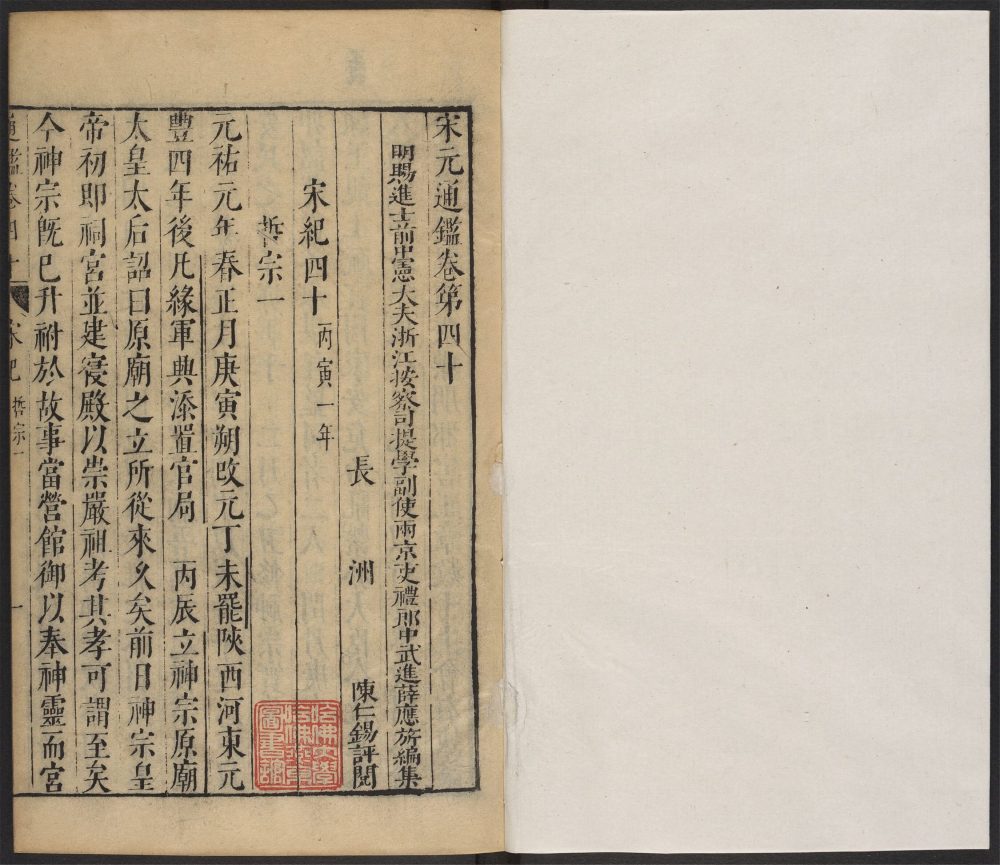 宋元通鑑卷第四十
明賜進士前中憲大夫浙江按察司提學副使兩京吏禮郎中武進薛應旂編集
長洲陳仁錫評閱
宋紀四十丙寅一年
哲宗一
元祐元年春正月庚寅朔改元丁未罷陝西河東元
豐四年後凡緣軍興添置官局丙辰立神宗原廟
太皇太后詔曰原廟之立所從來久矣前日神宗皇
帝初卽祠宮並建寢殿以崇嚴祖考其孝可謂至矣
今神宗旣已升祔於故事當營館御以奉神靈而宮
通鑑卷四十 宋紀 哲宗一 一
哈佛大學
哈佛燕京
圖書館